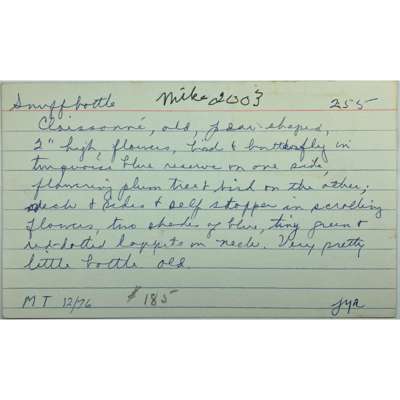 Snuffbottle Mike 2003 255
Cloissonné, old, pear shaped,
2" high, flowers, bird & butterfly in
turquoise blue reserve on one side,
flowering plum tree & bird on the other;
neck & sides & self stopper in scrolling
flowers, two shades of blue, tiny green &
red dotted lappits on neck. Very pretty
little bottle old.
MT 12/76 $185